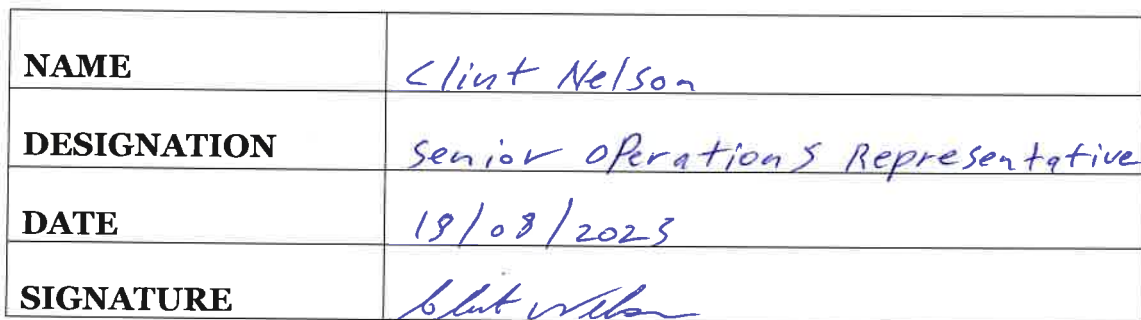 NAME Clint Nelson
DESIGNATION Senior Operations Representative
DATE 18/08/2023
SIGNATURE Clint Nelson